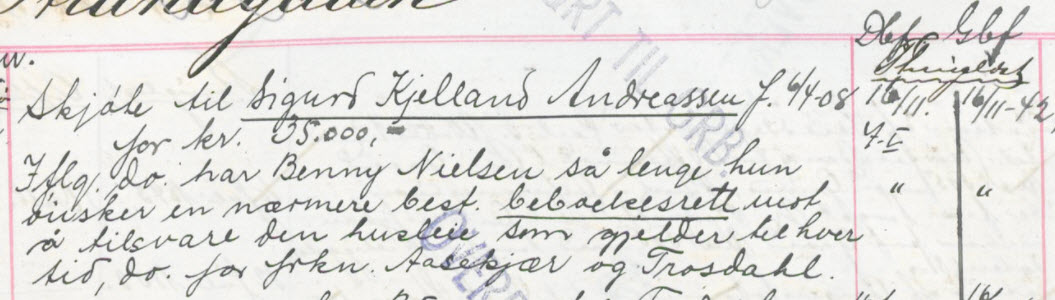 Dbf Gbf
Skjøte til Sigurd Kjelland Andreassen f. 6/4-08 16/11. 16/11-42
for kr. 35.000,-
Iflg. do. har Benny Nielsen så lenge hun " "
ønsker en nærmere best. beboelsesrett mot
å tilsvare den husleie som gjelder til hver
tid, do. for frkn. Aasekjær og Trosdahl.